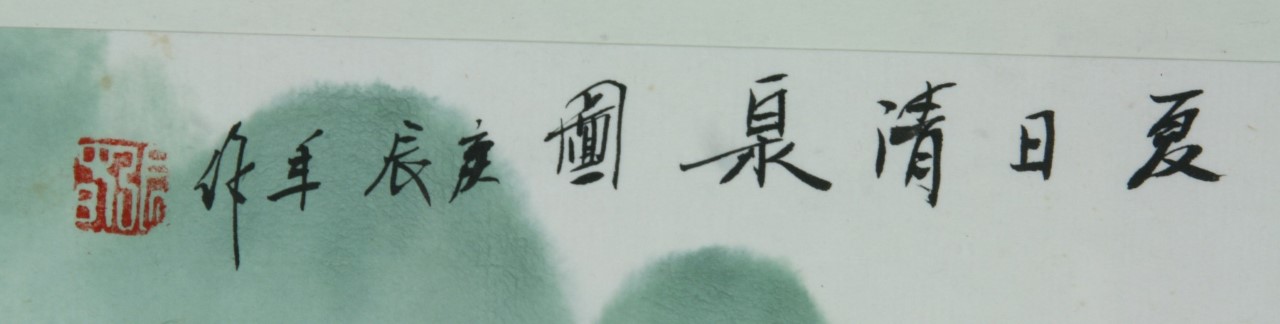 夏日清泉圖庚辰年作